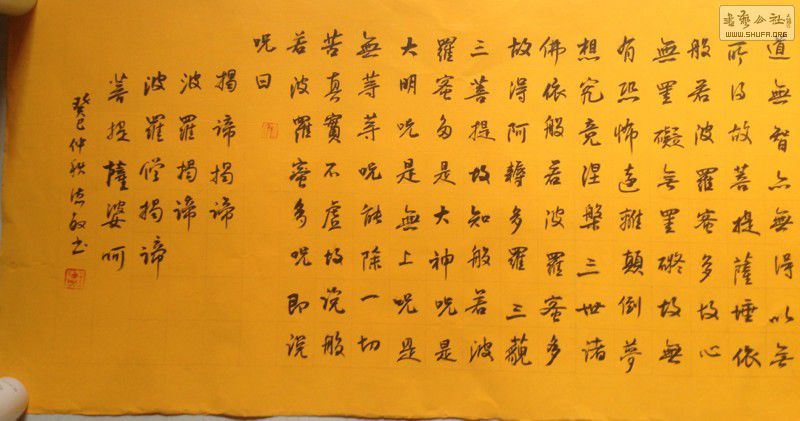 書藝公社
WWW.SHUFA.ORG
道無智亦無得以無
所得故菩提薩埵依
般若波羅蜜多故心
無罣礙無罣礙故無
有恐怖遠離顛倒夢
想究竟涅槃三世諸
佛依般若波羅蜜多
故得阿耨多羅三藐
三菩提故知般若波
羅蜜多是大神呪是
大明呪是無上呪是
無等等呪能除一切
苦真實不虛故說般
若波羅蜜多呪即說
呪曰
揭諦揭諦
波羅揭諦
波羅僧揭諦
菩提薩婆呵
癸巳仲秋書